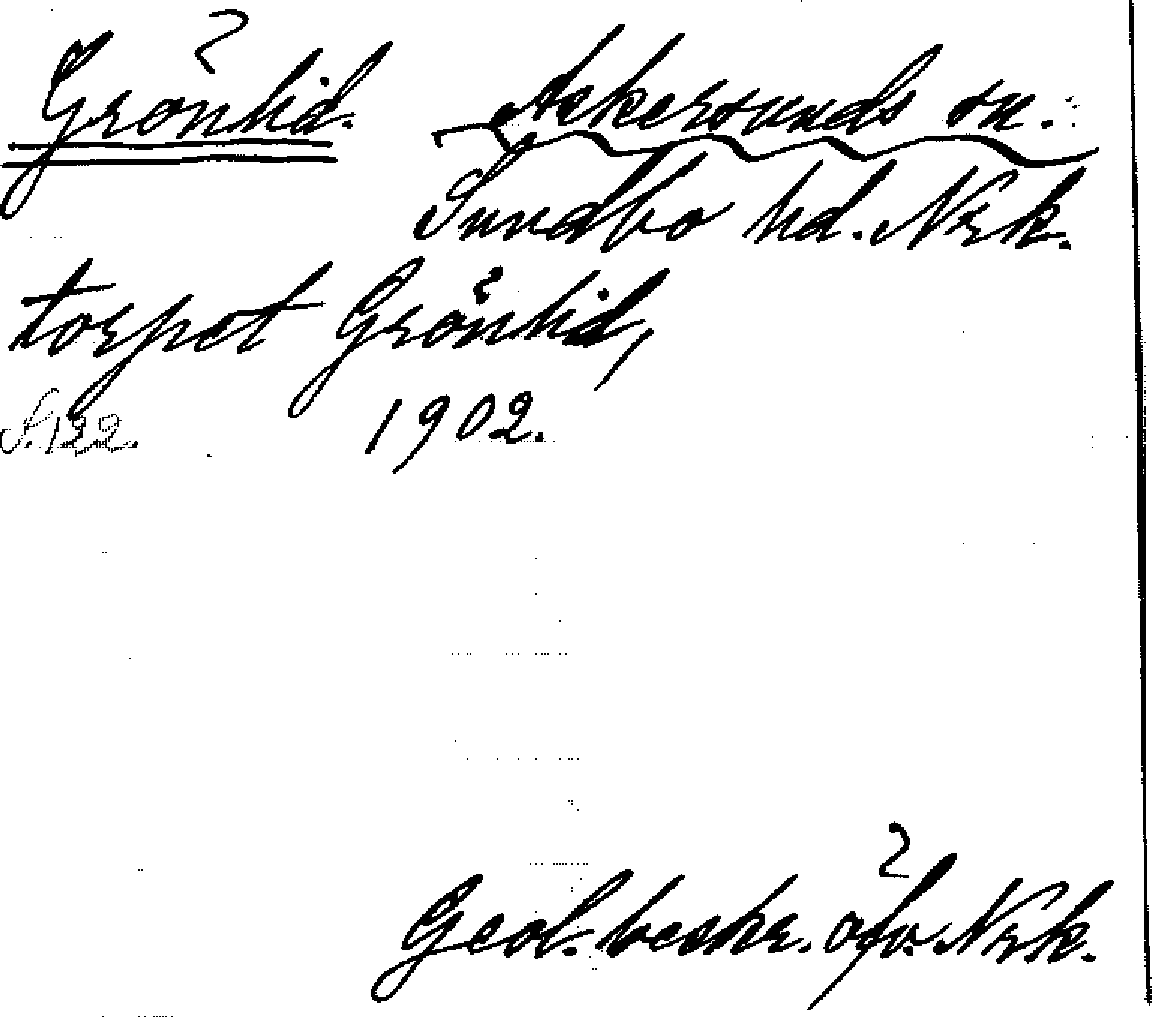 Grönlid. Askersunds sn.
Sundbo hd. Nrk.
torpet Grönlid,
S. 122. 1902.
Geol. beskr. öfv. Nrk.